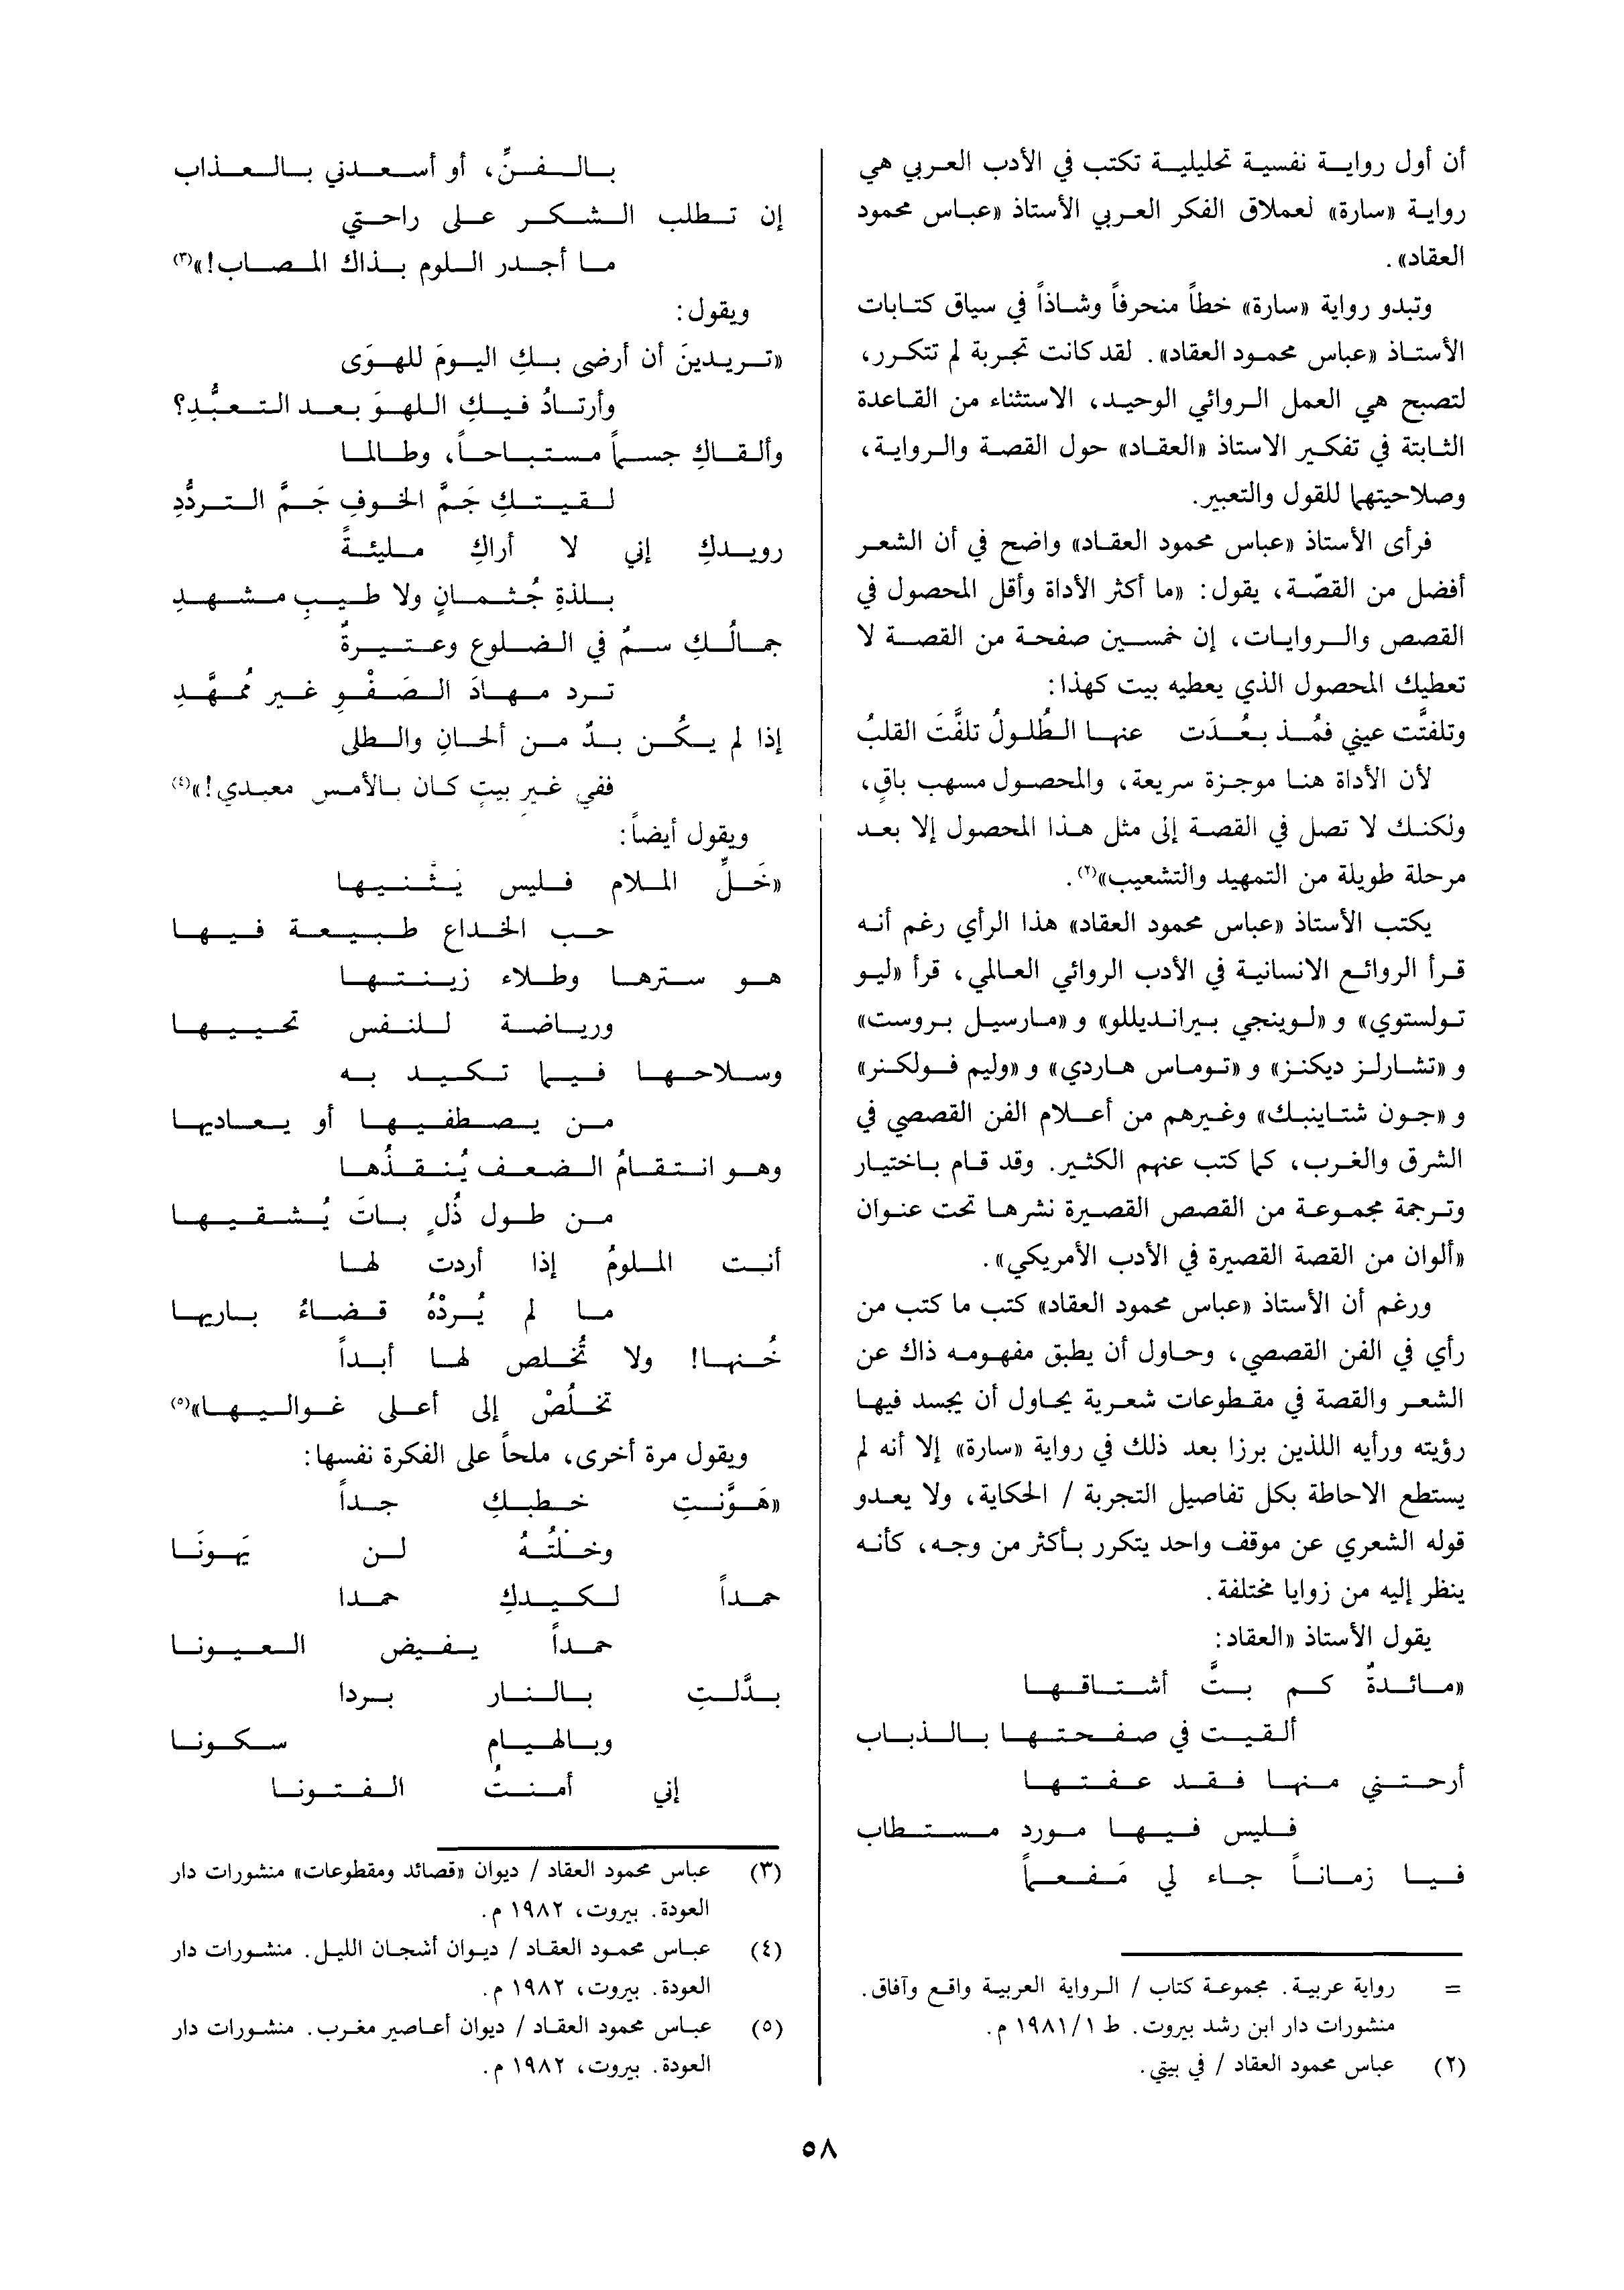 أن أول رواية نفسية تحليلية تكتب في الأدب العربي هي
رواية «سارة» لعملاق الفكر العربي الأستاذ «عباس محمود
العقاد».
وتبدو رواية «سارة» خطاً منحرفاً وشاذاً في سياق كتابات
الأستاذ «عباس محمود العقاد». لقد كانت تجربة لم تتكرر،
لتصبح هي العمل الروائي الوحيد، الاستثناء من القاعدة
الثابتة في تفكير الاستاذ «العقاد» حول القصة والرواية،
وصلاحيتهما للقول والتعبير.
فرأى الأستاذ «عباس محمود العقاد» واضح في أن الشعر
أفضل من القصّة، يقول: «ما أكثر الأداة وأقل المحصول في
القصص والروايات، إن خمسين صفحة من القصة لا
تعطيك المحصول الذي يعطيه بيت كهذا:
وتلفتَّت عيني فمُذ بعُدَت عنها الطُلولُ تلفَّتَ القلبُ
لأن الأداة هنا موجزة سريعة، والمحصول مسهب باقٍ،
ولكنك لا تصل في القصة إلى مثل هذا المحصول إلا بعد
مرحلة طويلة من التمهيد والتشعيب»(٢).
يكتب الأستاذ «عباس محمود العقاد» هذا الرأي رغم أنه
قرأ الروائع الانسانية في الأدب الروائي العالمي، قرأ «ليو
تولستوي» و «لوينجي بيرانديللو» و «مارسيل بروست»
و «تشارلز ديكنز» و «توماس هاردي» و «وليم فولكنر»
و «جون شتاينبك» وغيرهم من أعلام الفن القصصي في
الشرق والغرب، كما كتب عنهم الكثير. وقد قام باختيار
وترجمة مجموعة من القصص القصيرة نشرها تحت عنوان
«ألوان من القصة القصيرة في الأدب الأمريكي».
ورغم أن الأستاذ «عباس محمود العقاد» كتب ما كتب من
رأي في الفن القصصي، وحاول أن يطبق مفهومه ذاك عن
الشعر والقصة في مقطوعات شعرية يحاول أن يجسد فيها
رؤيته ورأيه اللذين برزا بعد ذلك في رواية «سارة» إلا أنه لم
يستطع الاحاطة بكل تفاصيل التجربة / الحكاية، ولا يعدو
قوله الشعري عن موقف واحد يتكرر بأكثر من وجه، كأنه
ينظر إليه من زوايا مختلفة.
يقول الأستاذ «العقاد:
«مائدةٌ كم بتَّ أشتاقها
ألقيت في صفحتها بالذباب
أرحتني منها فقد عفتها
فليس فيها مورد مستطاب
فيا زماناً جاء لي مَفعماً
= رواية عربية. مجموعة كتاب / الرواية العربية واقع وآفاق.
منشورات دار ابن رشد بيروت. ط ١٩٨١/١ م.
(٢) عباس محمود العقاد / في بيتي.
بالفنِّ، أو أسعدني بالعذاب
إن تطلب الشكر على راحتي
ما أجدر اللوم بذاك المصاب!»(٣)
ويقول:
«تريدينَ أن أرضى بكِ اليومَ للهوَى
وأرتادُ فيكِ اللهوَ بعد التعبُّدِ؟
وألقاكِ جسماً مستباحاً، وطالما
لقيتكِ جَمَّ الخوفِ جَمَّ التردُّدِ
رويدكِ إني لا أراكِ مليئةً
بلذةِ جُثمانٍ ولا طيبِ مشهدِ
جمالُكِ سمٌ في الضلوع وعتيرةٌ
ترد مهادَ الصَفْوِ غير مُمهَّدِ
إذا لم يكُن بدٌ من ألحانِ والطلى
ففي غيرِ بيتٍ كان بالأمس معبدي!»(٤)
ويقول أيضاً:
«خَلِّ الملام فليس يَثْنيها
حب الخداع طبيعة فيها
هو سترها وطلاء زينتها
ورياضة للنفس تحييها
وسلاحها فيما تكيد به
من يصطفيها أو يعاديها
وهو انتقامُ الضعف يُنقذُها
من طول ذُلٍ باتَ يُشقيها
أنت الملومُ إذا أردت لها
ما لم يُرِدْهُ قضاءُ باريها
خُنها! ولا تُخلص لها أبداً
تخلُصْ إلى أعلى غواليها»(٥)
ويقول مرة أخرى، ملحاً على الفكرة نفسها:
«هَوَّنتِ خطبكِ جداً
وخلْتُهُ لن يَهونَا
حمداً لكيدكِ حمدا
حمداً يفيض العيونا
بدَّلتِ بالنار بردا
وبالهيام سكونا
إني أمنتُ الفتونا
(٣) عباس محمود العقاد / ديوان «قصائد ومقطوعات» منشورات دار
العودة. بيروت، ١٩٨٢ م.
(٤) عباس محمود العقاد / ديوان أشجان الليل. منشورات دار
العودة. بيروت، ١٩٨٢ م.
(٥) عباس محمود العقاد / ديوان أعاصير مغرب. منشورات دار
العودة. بيروت، ١٩٨٢ م.
٥٨